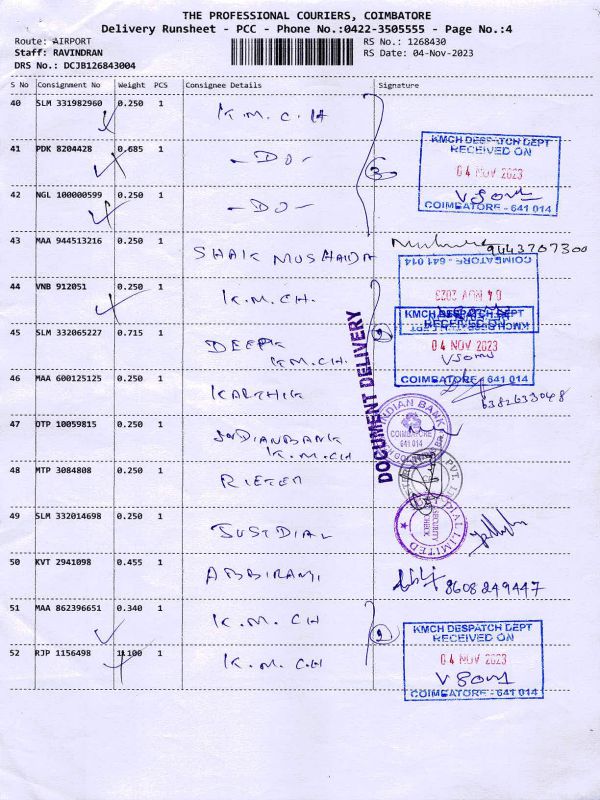 THE PROFESSIONAL COURIERS, COIMBATORE
Delivery Runsheet - PCC - Phone No.:0422-3505555 - Page No.:4
Route: AIRPORT RS No.: 1268430
Staff: RAVINDRAN RS Date: 04-Nov-2023
DRS No.: DCJB126843004
S No Consignment No Weight PCS Consignee Details Signature
40 SLM 331982960 0.250 1 K.M.C.H
41 PDK 8204428 0.685 1 -DO-
42 NGL 100000599 0.250 1 -DO-
3
KMCH DESPATCH DEPT
RECEIVED ON
04 NOV 2023
COIMBATORE - 641 014
43 MAA 944513216 0.250 1 9443707300
44 VNB 912051 0.250 1 K.M.CH.
COIMBATORE - 641 014
04 NOV 2023
45 SLM 332065227 0.715 1 DEEPA
K.M.CH.
2
KMCH DESPATCH DEPT
RECEIVED ON
04 NOV 2023
COIMBATORE - 641 014
DOCUMENT DELIVERY
46 MAA 600125125 0.250 1 KARTHIK 6382633048
47 OTP 10059815 0.250 1 INDIANBANK
K.M.CH
INDIAN BANK
COIMBATORE
641 014
48 MTP 3084808 0.250 1 RIETER
PVT.
49 SLM 332014698 0.250 1 JUSTDIAL
DIAL LIMITED
SECURITY
CHECK
50 KVT 2941098 0.455 1 ABBIRAMI 8608249447
51 MAA 862396651 0.340 1 K.M.CH
52 RJP 1156498 1.100 1 K.M.C.H
2
KMCH DESPATCH DEPT
RECEIVED ON
04 NOV 2023
COIMBATORE - 641 014